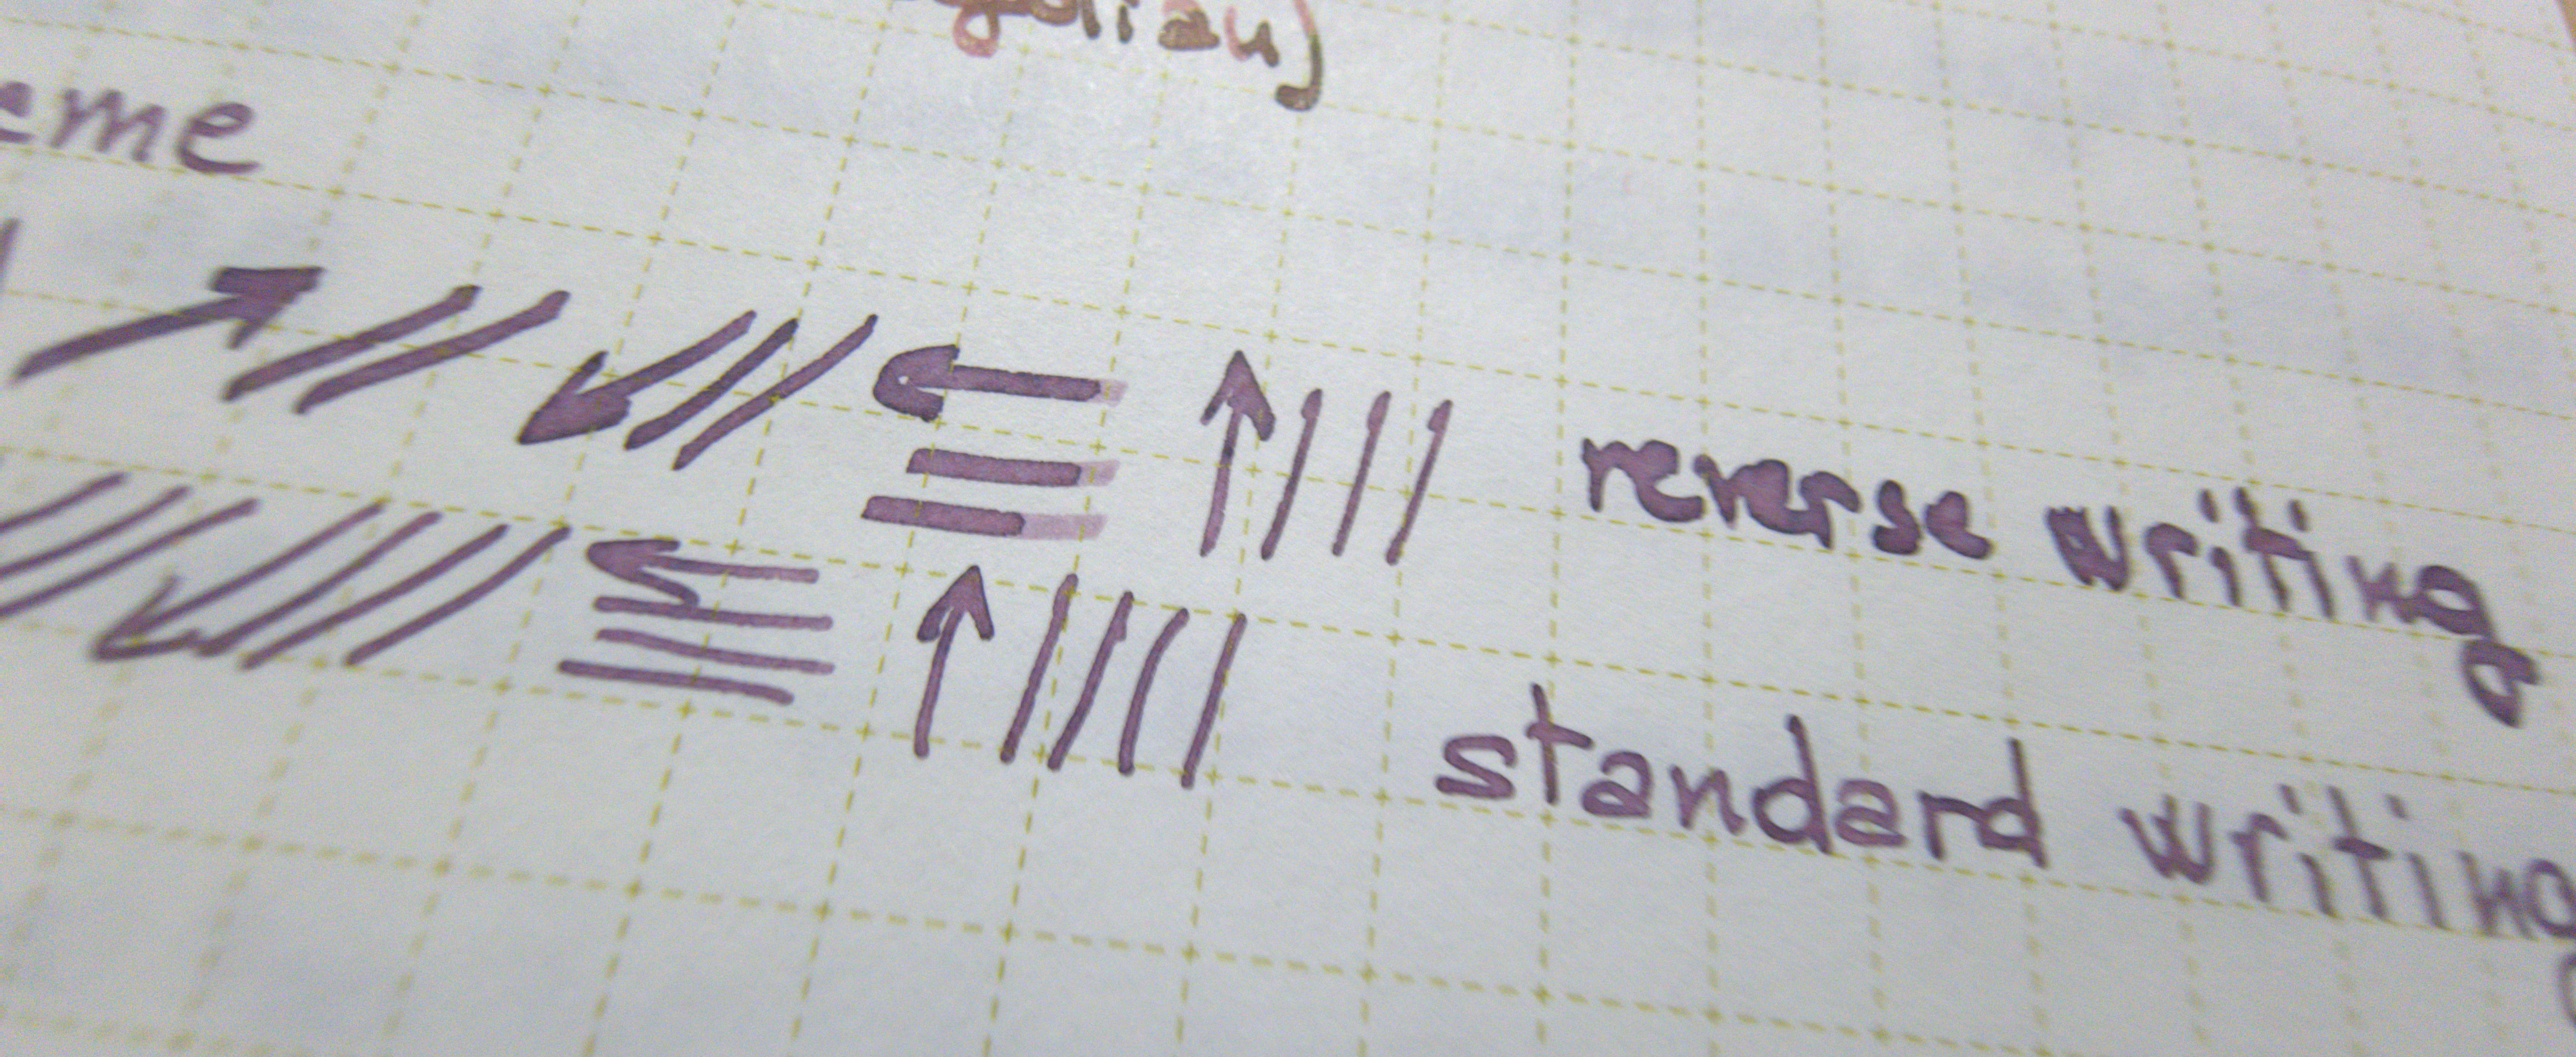 reverse writing
standard writing